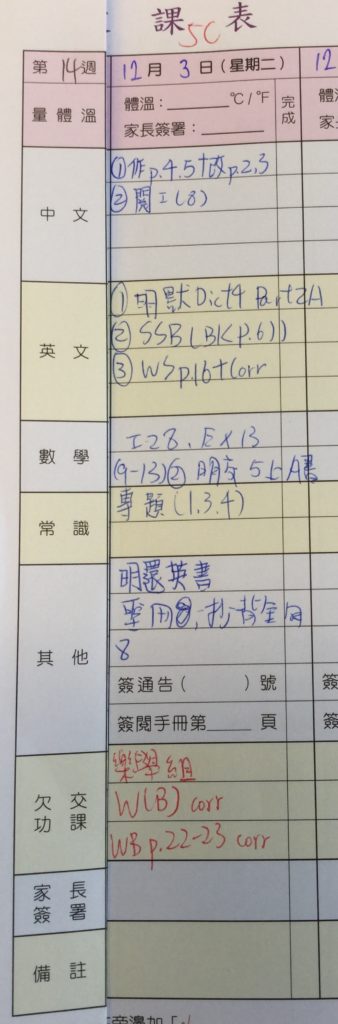 課表
5C
第14週 12月3日(星期二) 12
量體溫 體溫:______℃/℉ 完成
家長簽署:______
中文 ①作p.4.5+改p.2,3
②閱工(8)
英文 ①明默Dict4 Part2A
②SSB(BK p.6))
③WS p.16+Corr
數學 工28, Ex13
(9-13)②明交5上A書
常識 專題(1.3.4)
其他 明還英書
8
簽通告( )號 簽
簽閱手冊第____頁 簽
欠交功課 樂學組
W(B) corr
WB p.22-23 corr
家長簽署
備註